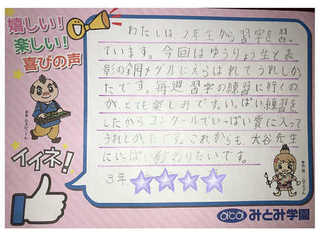 嬉しい!
楽しい!
喜びの声
イイネ!
わたしは、2年生から習字を習
っています。今回はゆうりょう生と表
彰の銅メダルにえらばれてうれしかっ
たです。毎週習字の練習に行くの
が、とても楽しみです。いっぱい練習を
したからコンクールでいっぱい賞に入って
うれしかったです。これからも、大谷先生
にいっぱい教わりたいです。
3年
みとみ学園